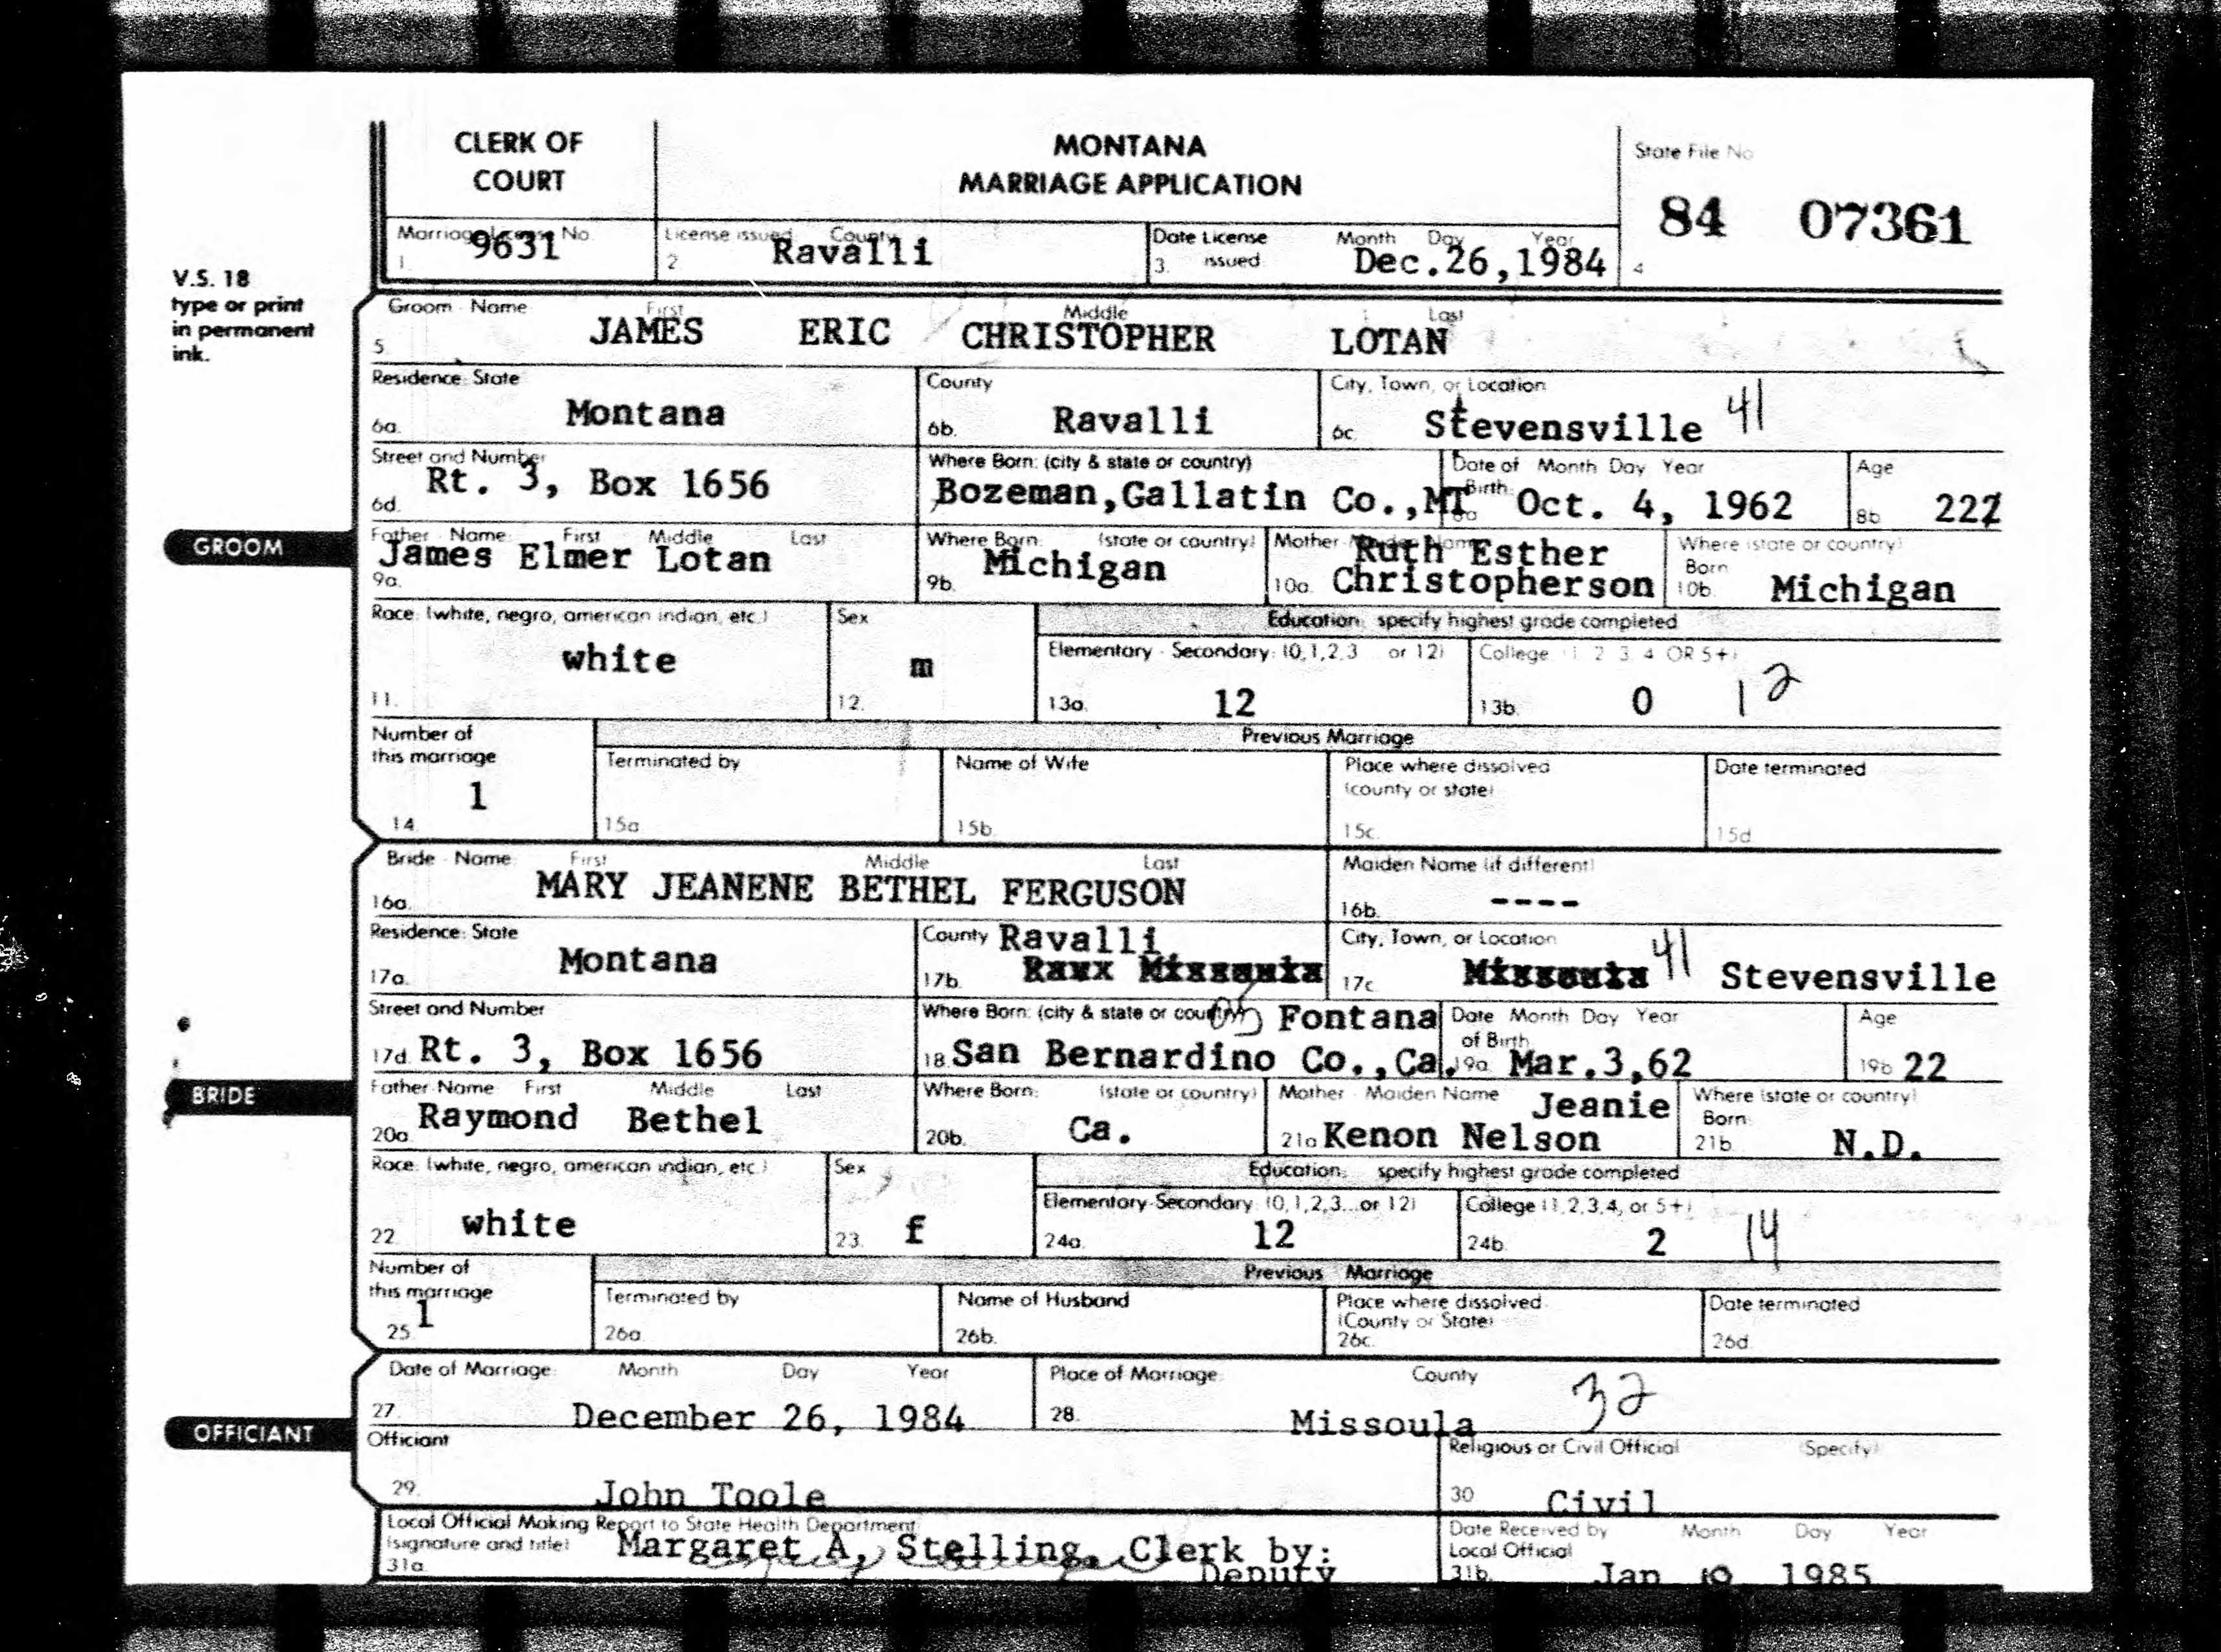 CLERK OF COURT
MONTANA
MARRIAGE APPLICATION
State File No
84 07361
Marriage License No
1 9631
License issued County
2 Ravalli
Date License Month Day Year
3. issued Dec.26,1984
4
V.S. 18
type or print
in permanent
ink.
GROOM
Groom - Name First Middle Last
5 JAMES ERIC CHRISTOPHER LOTAN
Residence: State
6a. Montana
County
6b. Ravalli
City, Town, or Location
6c. Stevensville 41
Street and Number
6d. Rt. 3, Box 1656
Where Born: (city & state or country)
Bozeman,Gallatin Co.,MT
Date of Month Day Year
Birth Oct. 4, 1962
Age
8b 22
Father - Name: First Middle Last
9a. James Elmer Lotan
Where Born: (state or country)
9b. Michigan
Mother - Maiden Name
10a. Ruth Esther
Christopherson
Where (state or country)
Born
10b. Michigan
Race: (white, negro, american indian, etc.)
11. white
Sex
12. m
Education: specify highest grade completed
Elementary - Secondary: (0,1,2,3 or 12)
13a. 12
College (1 2 3 4 OR 5+)
13b. 0 12
Number of
this marriage
14. 1
Previous Marriage
Terminated by
15a
Name of Wife
15b.
Place where dissolved
(county or state)
15c.
Date terminated
15d
BRIDE
Bride - Name: First Middle Last
16a. MARY JEANENE BETHEL FERGUSON
Maiden Name (if different)
16b. ----
Residence: State
17a. Montana
County Ravalli
17b. Missoula
City, Town, or Location
17c. Missoula 41 Stevensville
Street and Number
17d. Rt. 3, Box 1656
Where Born: (city & state or country) Fontana
18. San Bernardino Co.,Ca.
Date Month Day Year
of Birth
19a. Mar.3,62
Age
19b 22
Father-Name First Middle Last
20a Raymond Bethel
Where Born: (state or country)
20b. Ca.
Mother - Maiden Name Jeanie
21a Kenon Nelson
Where (state or country)
Born:
21b. N.D.
Race: (white, negro, american indian, etc.)
22. white
Sex
23. f
Education: specify highest grade completed
Elementary-Secondary: (0,1,2,3...or 12)
24a. 12
College (1,2,3,4, or 5+)
24b. 2 14
Number of
this marriage
25 1
Previous Marriage
Terminated by
26a
Name of Husband
26b.
Place where dissolved
(County or State)
26c.
Date terminated
26d
OFFICIANT
Date of Marriage: Month Day Year
27. December 26, 1984
Place of Marriage: County
28. Missoula 32
Officiant
29. John Toole
Religious or Civil Official (Specify)
30 Civil
Local Official Making Report to State Health Department
(signature and title) Margaret A. Stelling, Clerk by:
31a Deputy
Date Received by Month Day Year
Local Official
31b. Jan 10 1985